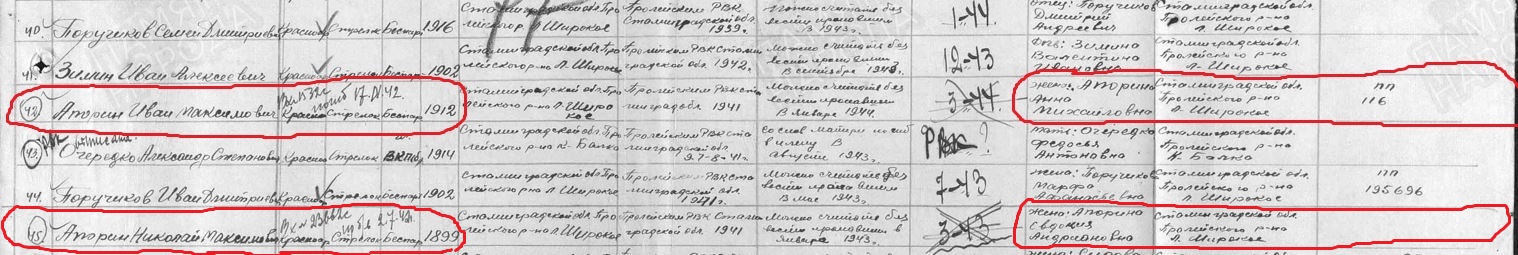 40. Поручиков Семен Дмитриев. Красноар. Стрелок Беспар. 1916 Сталинградской обл. Про лейского р. Л. Широкое Пролейским РВК Сталинградской обл. 1939г. Можно считать без вести пропавшим в 1943г. 1-44 Отец: Поручиков Дмитрий Андреевич Сталинградской обл. Пролейского р-на Л. Широкое
41. Зимин Иван Алексеевич Красно Стрелок Беспар 1902 Сталинградской обл Про лейского р-на Л. Широкое Пролейским РВК Сталин градской обл. 1942г. Можно считать без вести пропавшим в сентябре 1943г. 12-43 Зимина Валентина Ивановна Сталинградской обл. Пролейского р-на Л. Широкое
42. Апорин Иван Максимович Красно Стрелок Беспар 1912 погиб 17.11.42. Сталинградской обл Про лейского р-на Л. Широ кое Пролейским РВК Ста линград обл. 1941 Можно считать без вести пропавшим в Январе 1944. 3-44 жена: Апорина Анна Михайловна Сталинградской обл. Пролейского р-на Л. Широкое пп 116
43. Очередко Александр Степанович Красно Стрелок ВКПб 1914 Сталинградской обл Про лейского р-на К-Балка Пролейским РВК Ста линградской обл. 9-7-8-41г. со слов матери погиб в плену в августе 1943г. РВК ? мать: Очередко Федосья Антоновна Сталинградской обл. Пролейского р-на К. Балка
44. Поручиков Иван Дмитриевич Красно Стрелок Беспар 1902 Сталинградской обл Про лейского р-на Л Широкое Пролейским РВК Ста линградской обл. 1941г. Можно считать без вести пропавшим в Мае 1943г. 7-43 жена: Поручикова Марфа Афанасьевна Сталинградской обл. Пролейского р-на Л Широкое пп 195696
45. Апорин Николай Максимович Красноар Стрелок Беспар 1899 2.7.42г. Сталинградской обл Про лейского р-на Л Широкое Пролейским РВК Сталин градской обл. 1941 Можно считать без вести пропавшим в Январе 1943г. 3-43 жена: Апорина Евдокия Андриановна Сталинградской обл. Пролейского р-на Л. Широкое